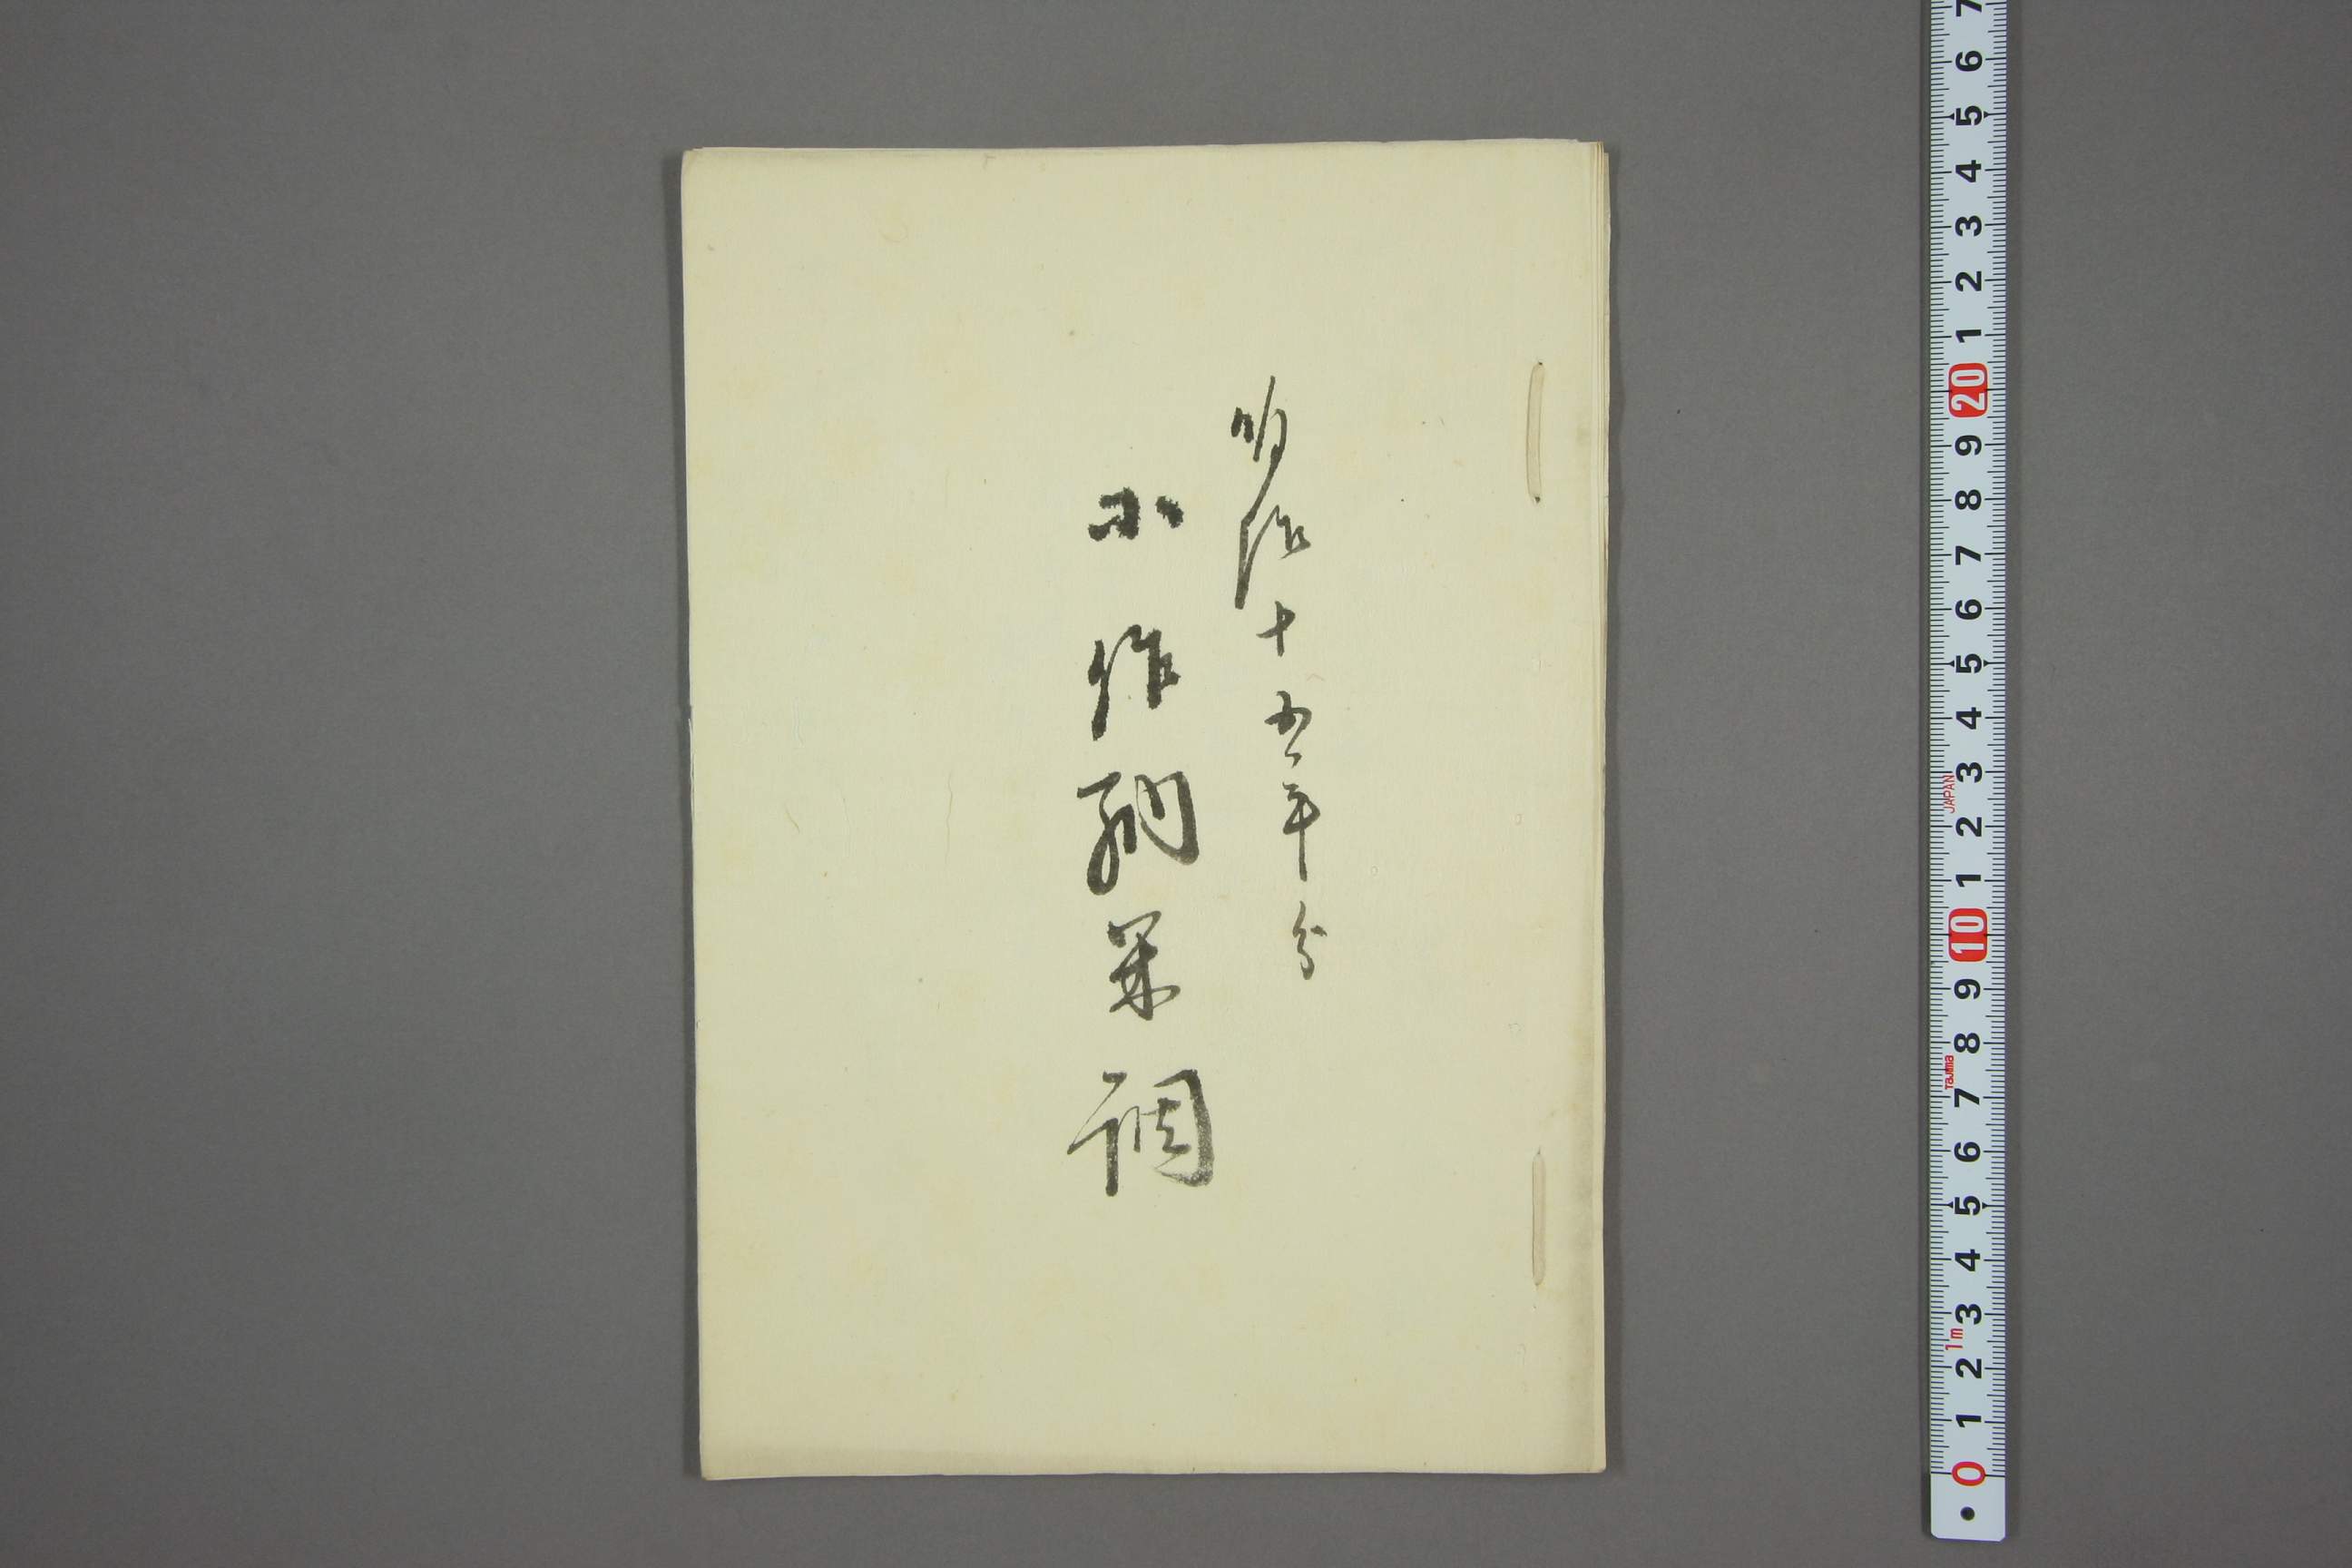 明治十五年分
小作納米調
0 1 2 3 4 5 6 7 8 9 10 1 2 3 4 5 6 7 8 9 20 1 2 3 4 5 6 7
1m
Tajima
JAPAN